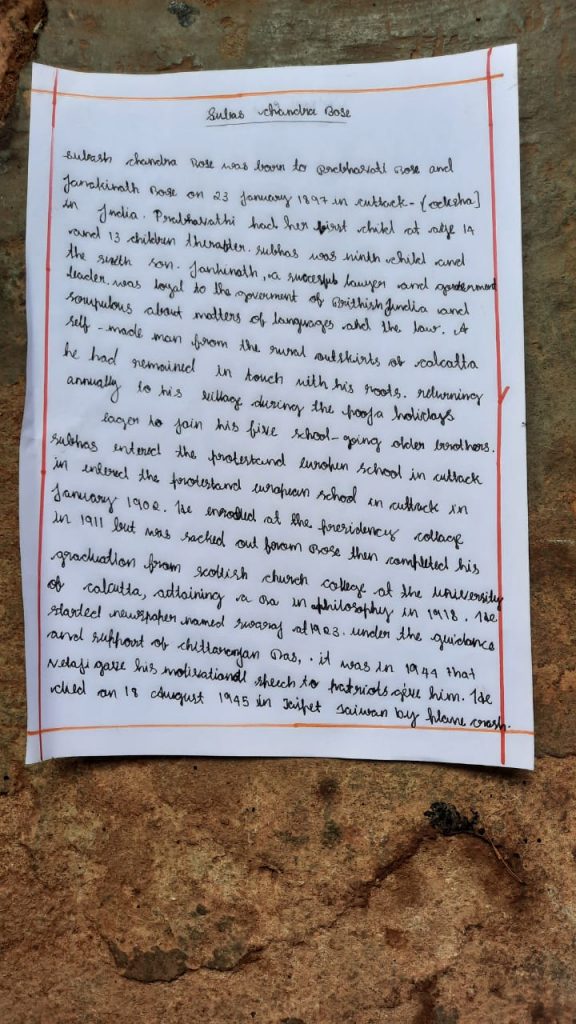 Subas Chandra Bose
Subash chandra Bose was born to Prabhavati Bose and
Janakinath Bose on 23 January 1897 in cuttack - [odesha]
in India. Prabhavathi had her first child at age 14
and 13 children therafter. subhas was ninth child and
the sixth son. Jankinath, a succesful lawyer and goverment
leader. was loyal to the goverment of Brithish India and
scrupulous about matters of languages and the law. A
self - made man from the rural outskirts of calcatta
he had remained in touch with his roots. returning
annually to his village during the pooja holidays
eager to join his five school-going older brothers.
subhas entered the protestand europen school in cuttack
in entered the protestand european school in cuttack in
January 1902. He enrolled at the presidency collage
in 1911 but was sacked out foram Bose then completed his
graduation from scottish church college at the university
of calcutta, attaining a Ba in philosophy in 1918. He
started newspaper named swaraj at 1923. under the guidance
and support of chittaranjan Das,. it was in 1944 that
Netaji gave his motivationall speech to patriots give him. He
died on 18 August 1945 in Taipet Taiwan by plane crash.